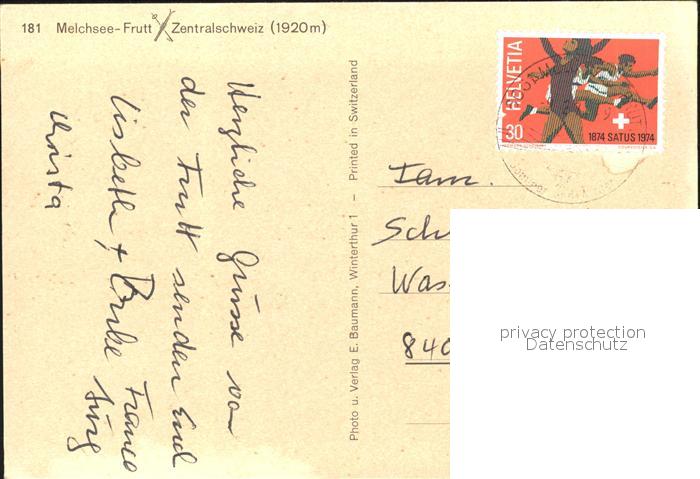 181 Melchsee-Frutt Zentralschweiz (1920m)
Herzliche Grüsse von
der Frutt senden Euch
Lisbeth + Franco
Jürg
Christa
Photo u. Verlag E. Baumann, Winterthur 1 – Printed in Switzerland
HELVETIA
30
1874 SATUS 1974
Fam.
Sch
Was
840
privacy protection
Datenschutz